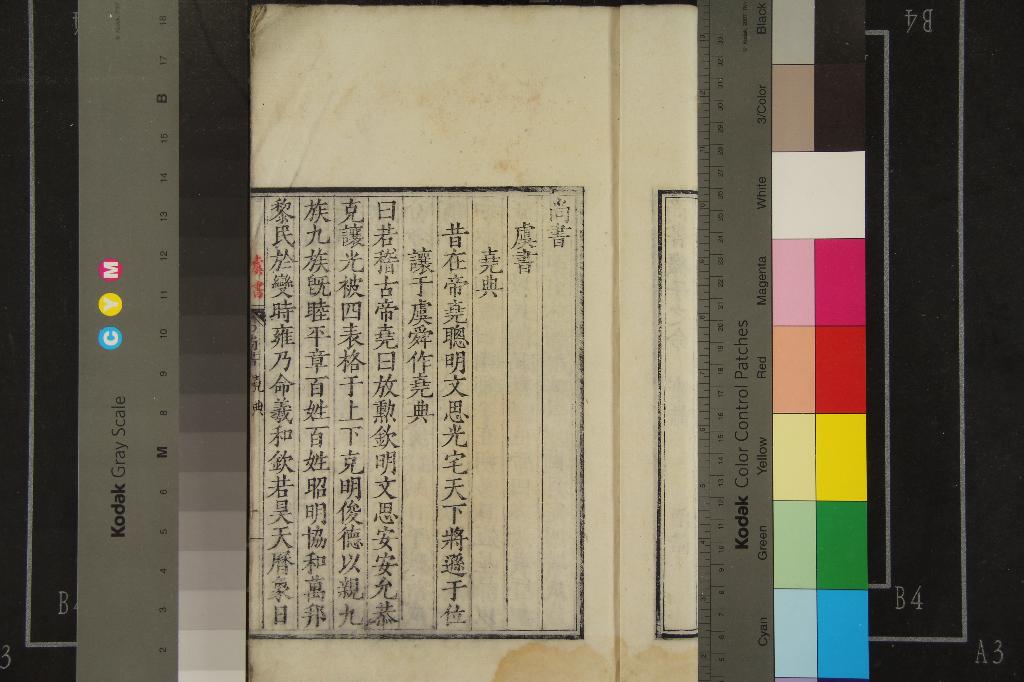 尚書
虞書
堯典
昔在帝堯聰明文思光宅天下將遜于位
讓于虞舜作堯典
曰若稽古帝堯曰放勳欽明文思安安允恭
克讓光被四表格于上下克明俊德以親九
族九族旣睦平章百姓百姓昭明協和萬邦
黎民於變時雍乃命羲和欽若昊天曆象日
虞書
堯典
Kodak Gray Scale
C Y M
Kodak Color Control Patches
Black
3/Color
White
Magenta
Red
Yellow
Green
Cyan
B4
B4
A3